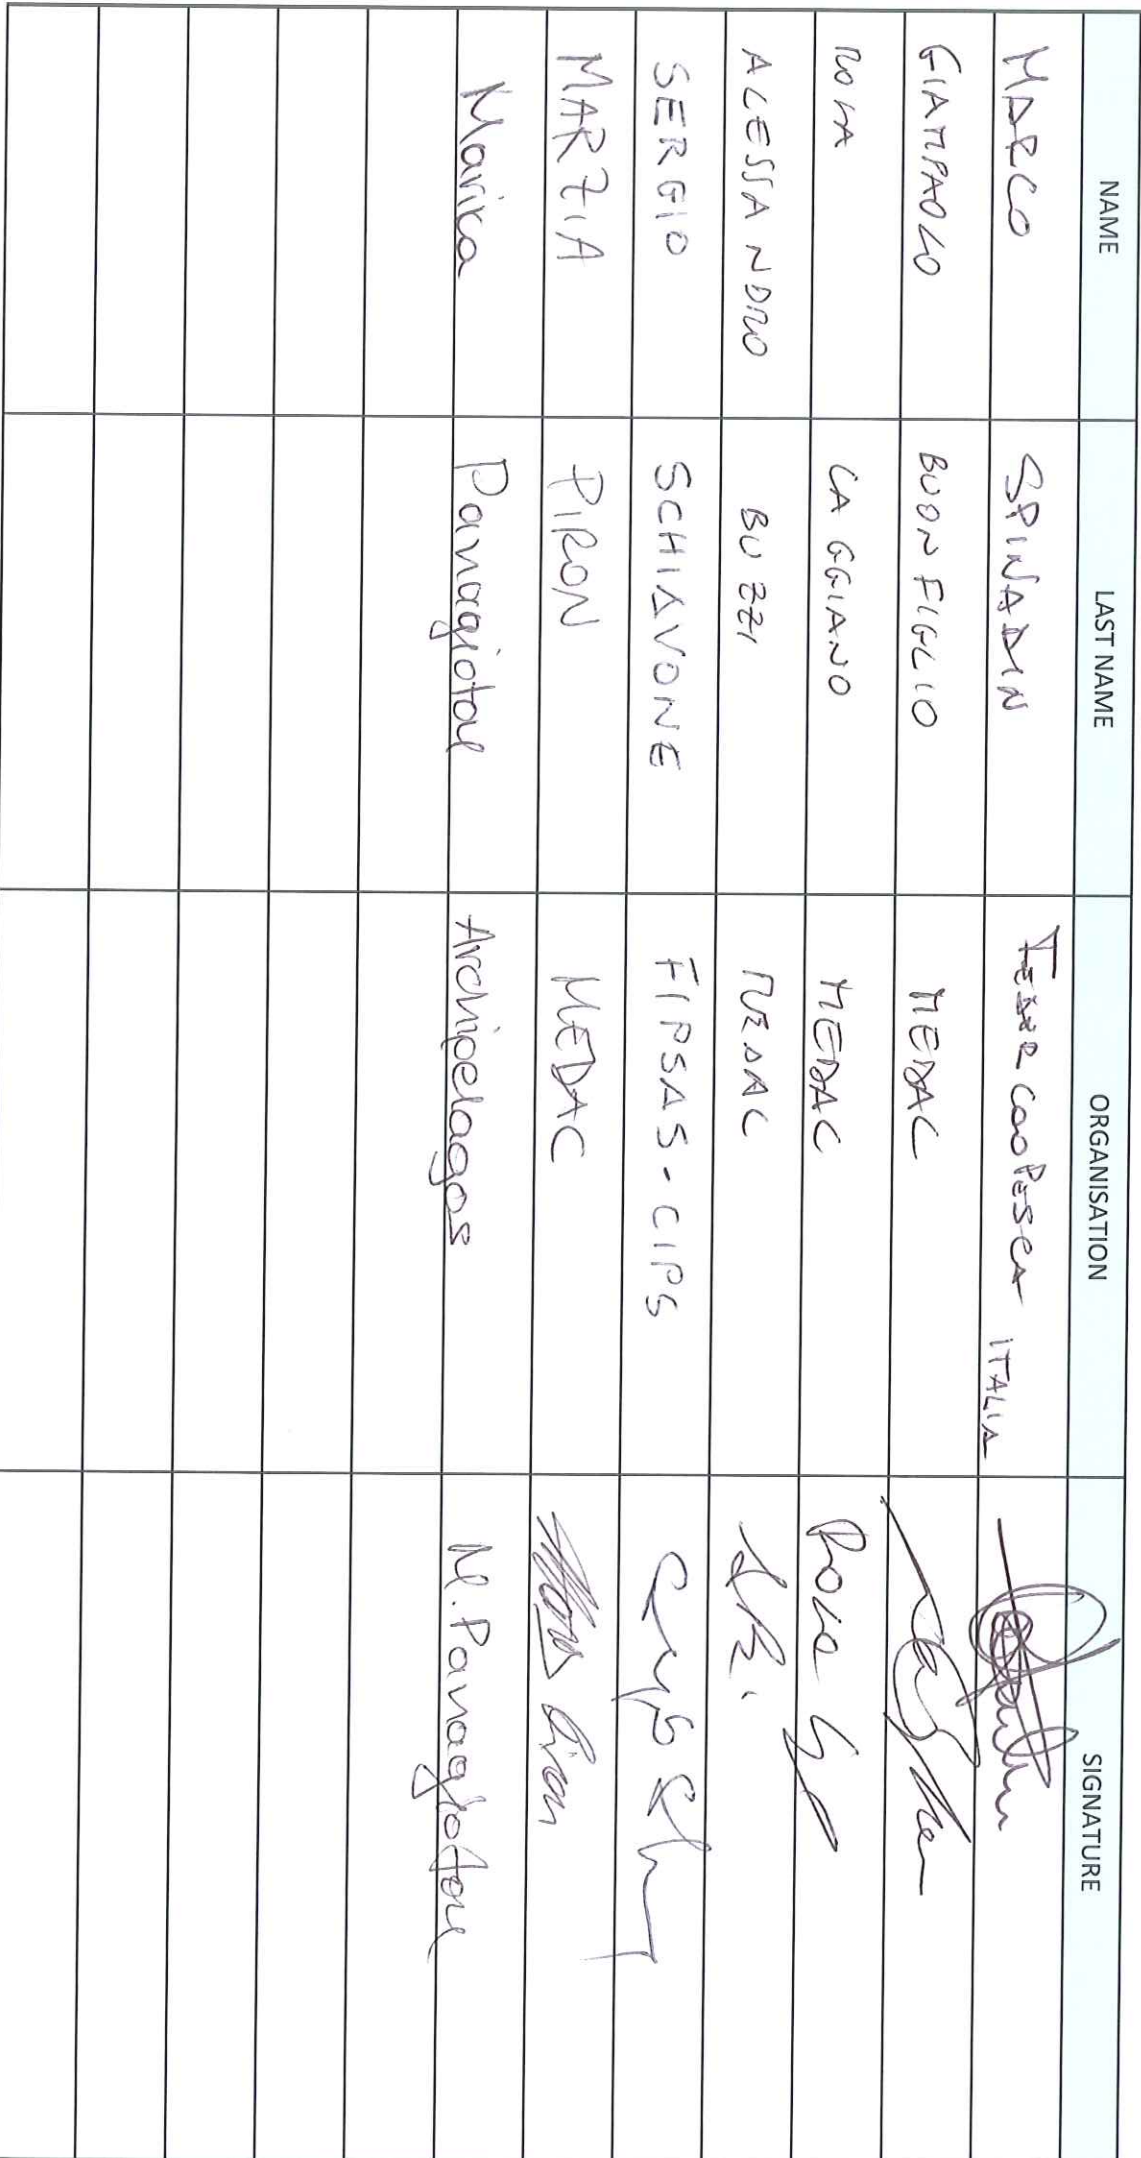 NAME LAST NAME ORGANISATION SIGNATURE
MARCO SPINADIN FEDERCOOPESCA ITALIA
GIAMPAOLO BUONFIGLIO MEDAC
ROSA CAGGIANO MEDAC Rosa
ALESSANDRO BUZZI MEDAC
SERGIO SCHIAVONE FIPSAS-CIPS
MARZIA PIRON MEDAC Marzia Piron
Marika Panagiotou Archipelagos M. Panagiotou